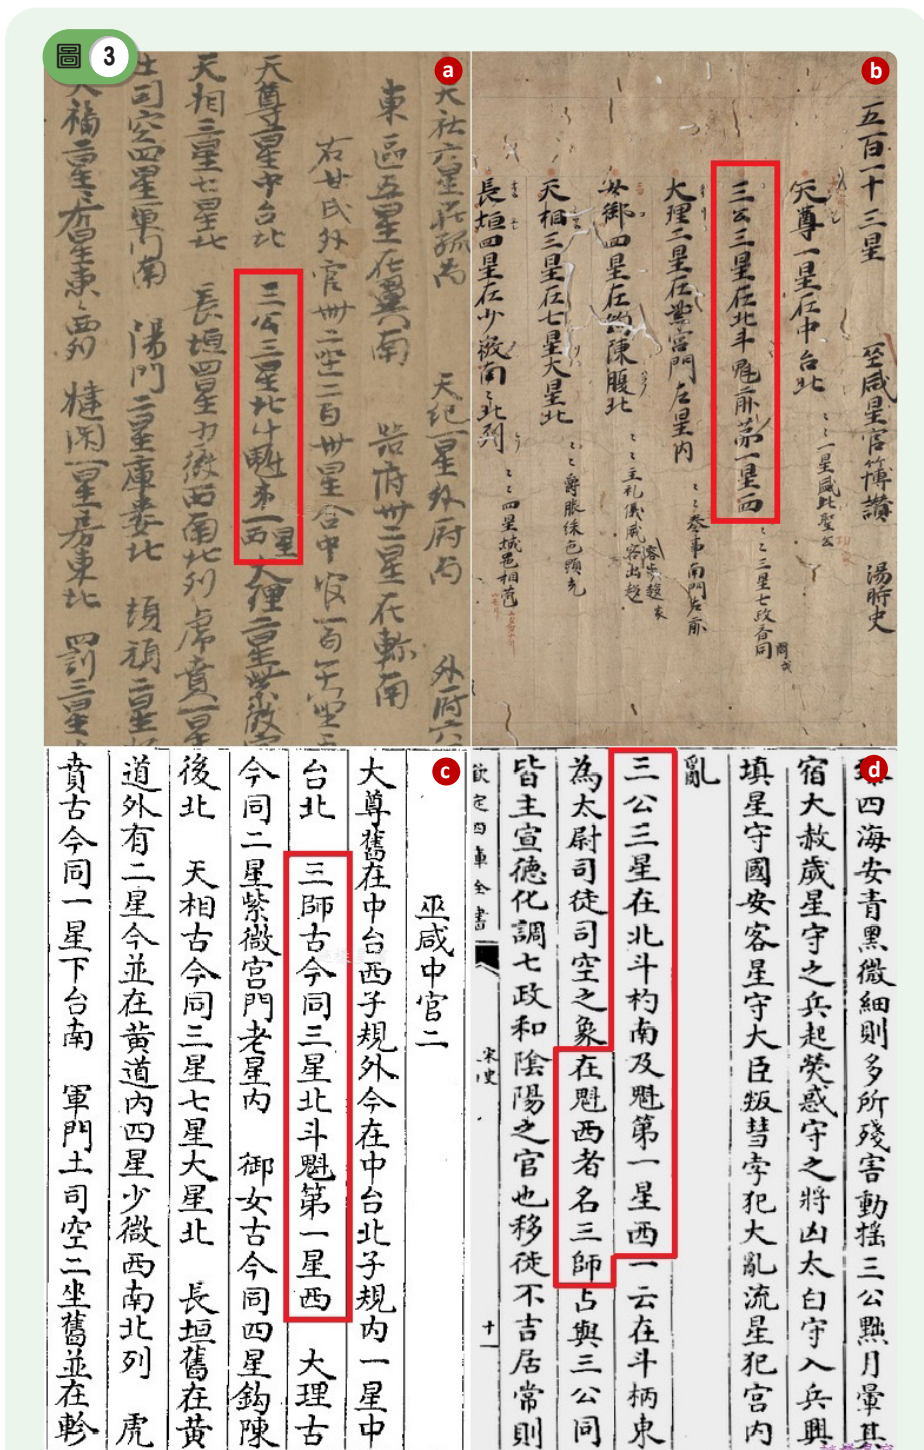 圖 3
a
大社六星在弧南 天紀一星外府南 外府六
東區五星在翼南 器府卅二星在軫南
右甘氏外官卌二坐二百卅星合中官一百
天尊星中台北 三公三星北斗魁第一星西 大理二星紫微宮
天相三星七星北 長垣四星少微西南北列 虎賁一星
土司空四星軍門南 陽門二星庫婁北 頓頑二星
天福二星房星東西列 鍵閉一星房東北 四罰三星
b
五百一十三星 巫咸星官簿讚 湯時史
天尊一星在中台北 ミミ一星盛比聖公
三公三星在北斗魁前第一星西 ミミ三星七政各同
大理二星在紫宮門左星內 ミミ叅事南門左前
女御四星在鈎陳腹北 ミミ主礼儀威容出趍
天相三星在七星大星北 ミミ爵服綵色頭光
長垣四星在少微南ミ北列 ミミ四星城邑相苞
c
巫咸中官二
大尊舊在中台西子規外今在中台北子規內一星中
台北 三師古今同三星北斗魁第一星西 大理古
今同二星紫微宮門老星內 御女古今同四星鈎陳
後北 天相古今同三星七星大星北 長垣舊在黄
道外有二星今並在黄道內四星少微西南北列 虎
賁古今同一星下台南 軍門土司空二坐舊並在軫
d
四海安青黑微細則多所殘害動揺三公黜月暈其
宿大赦歲星守之兵起熒惑守之將凶太白守入兵興
填星守國安客星守大臣叛彗孛犯大亂流星犯宮內
亂
三公三星在北斗杓南及魁第一星西一云在斗柄東
為太尉司徒司空之象在魁西者名三師占與三公同
皆主宣德化調七政和陰陽之官也移徙不吉居常則
欽定四庫全書 宋史 十一